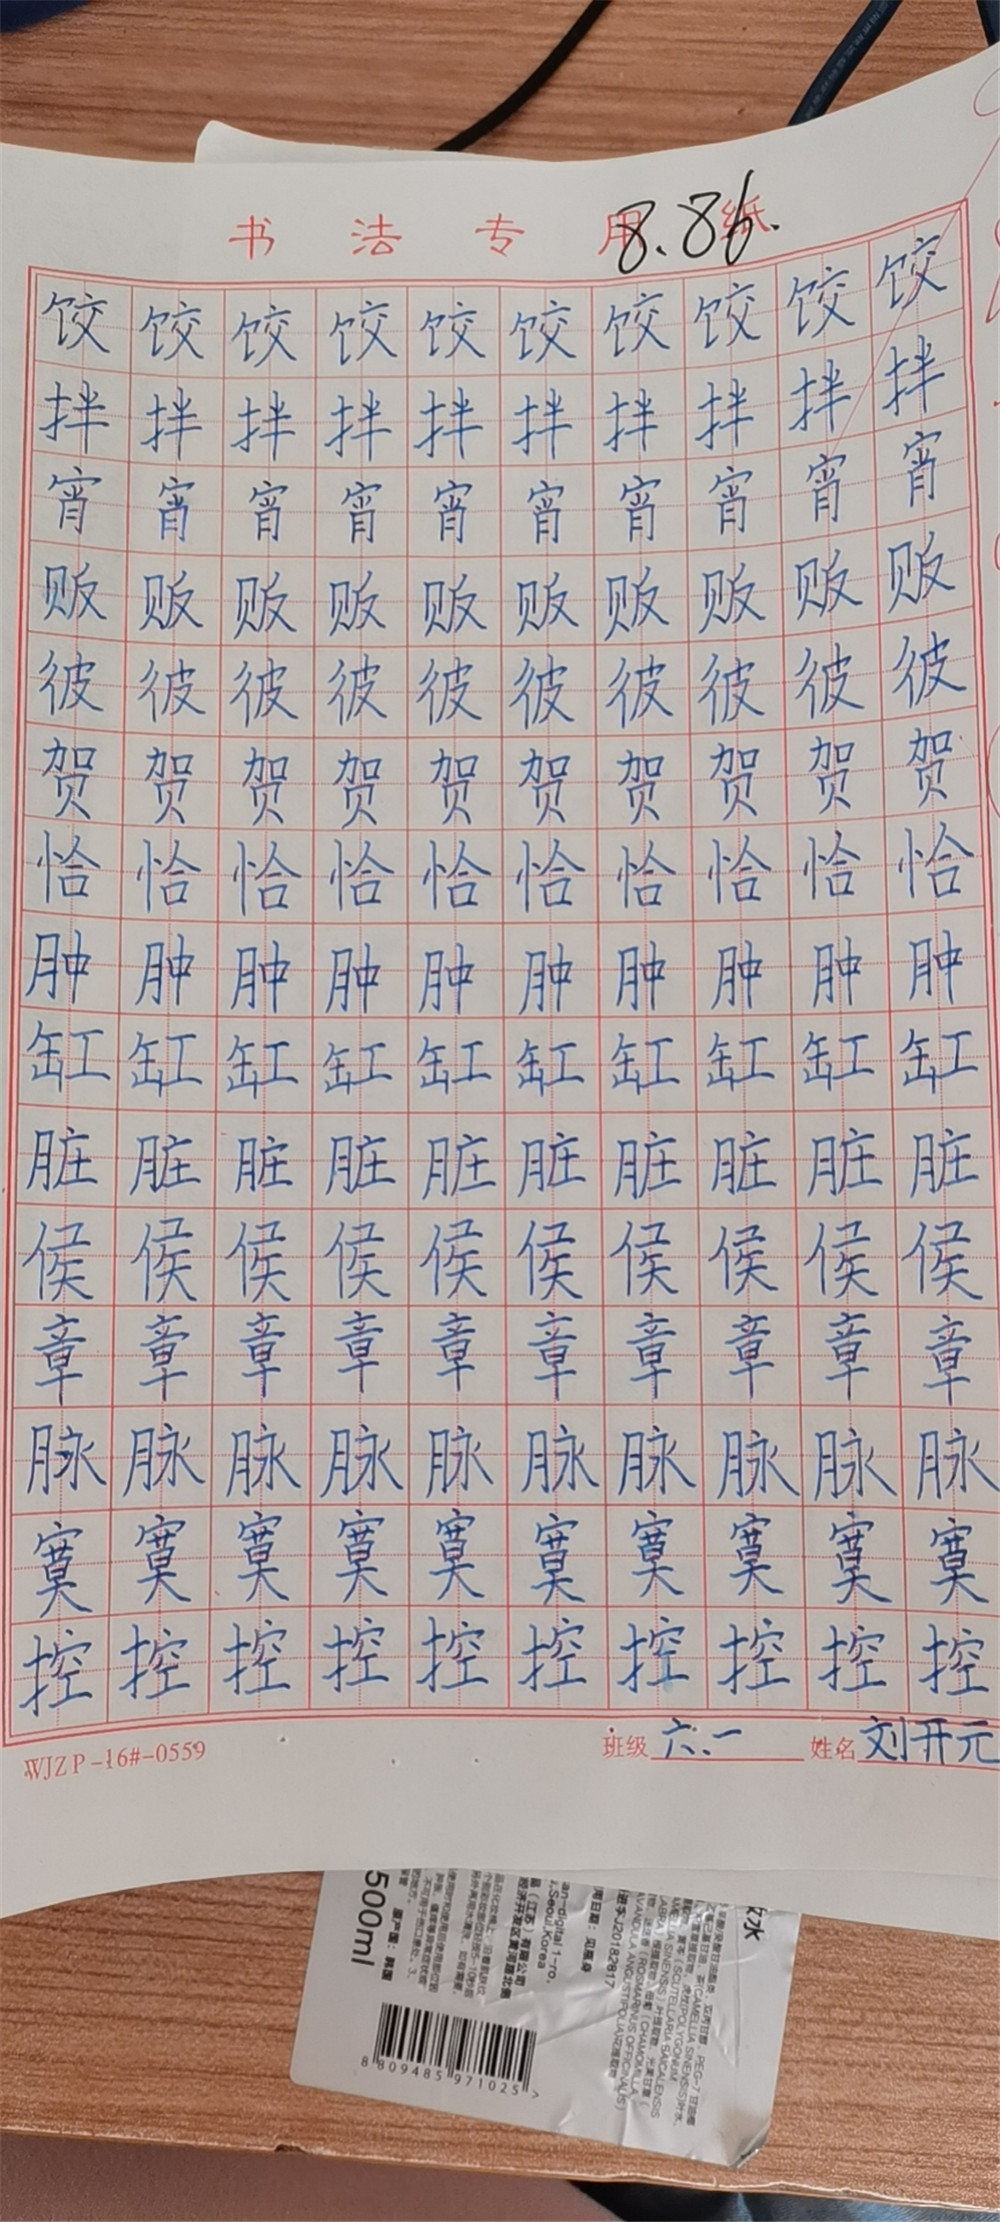 书法专用纸
8.86.
饺饺饺饺饺饺饺饺饺饺
拌拌拌拌拌拌拌拌拌拌
宵宵宵宵宵宵宵宵宵宵
贩贩贩贩贩贩贩贩贩贩
彼彼彼彼彼彼彼彼彼彼
贺贺贺贺贺贺贺贺贺贺
恰恰恰恰恰恰恰恰恰恰
肿肿肿肿肿肿肿肿肿肿
缸缸缸缸缸缸缸缸缸缸
脏脏脏脏脏脏脏脏脏脏
侯侯侯侯侯侯侯侯侯侯
章章章章章章章章章章
脉脉脉脉脉脉脉脉脉脉
寞寞寞寞寞寞寞寞寞寞
控控控控控控控控控控
WJZP-16#-0559 班级 六.一 姓名 刘开元
500ml
原产国：韩国
8 809485 971025 >